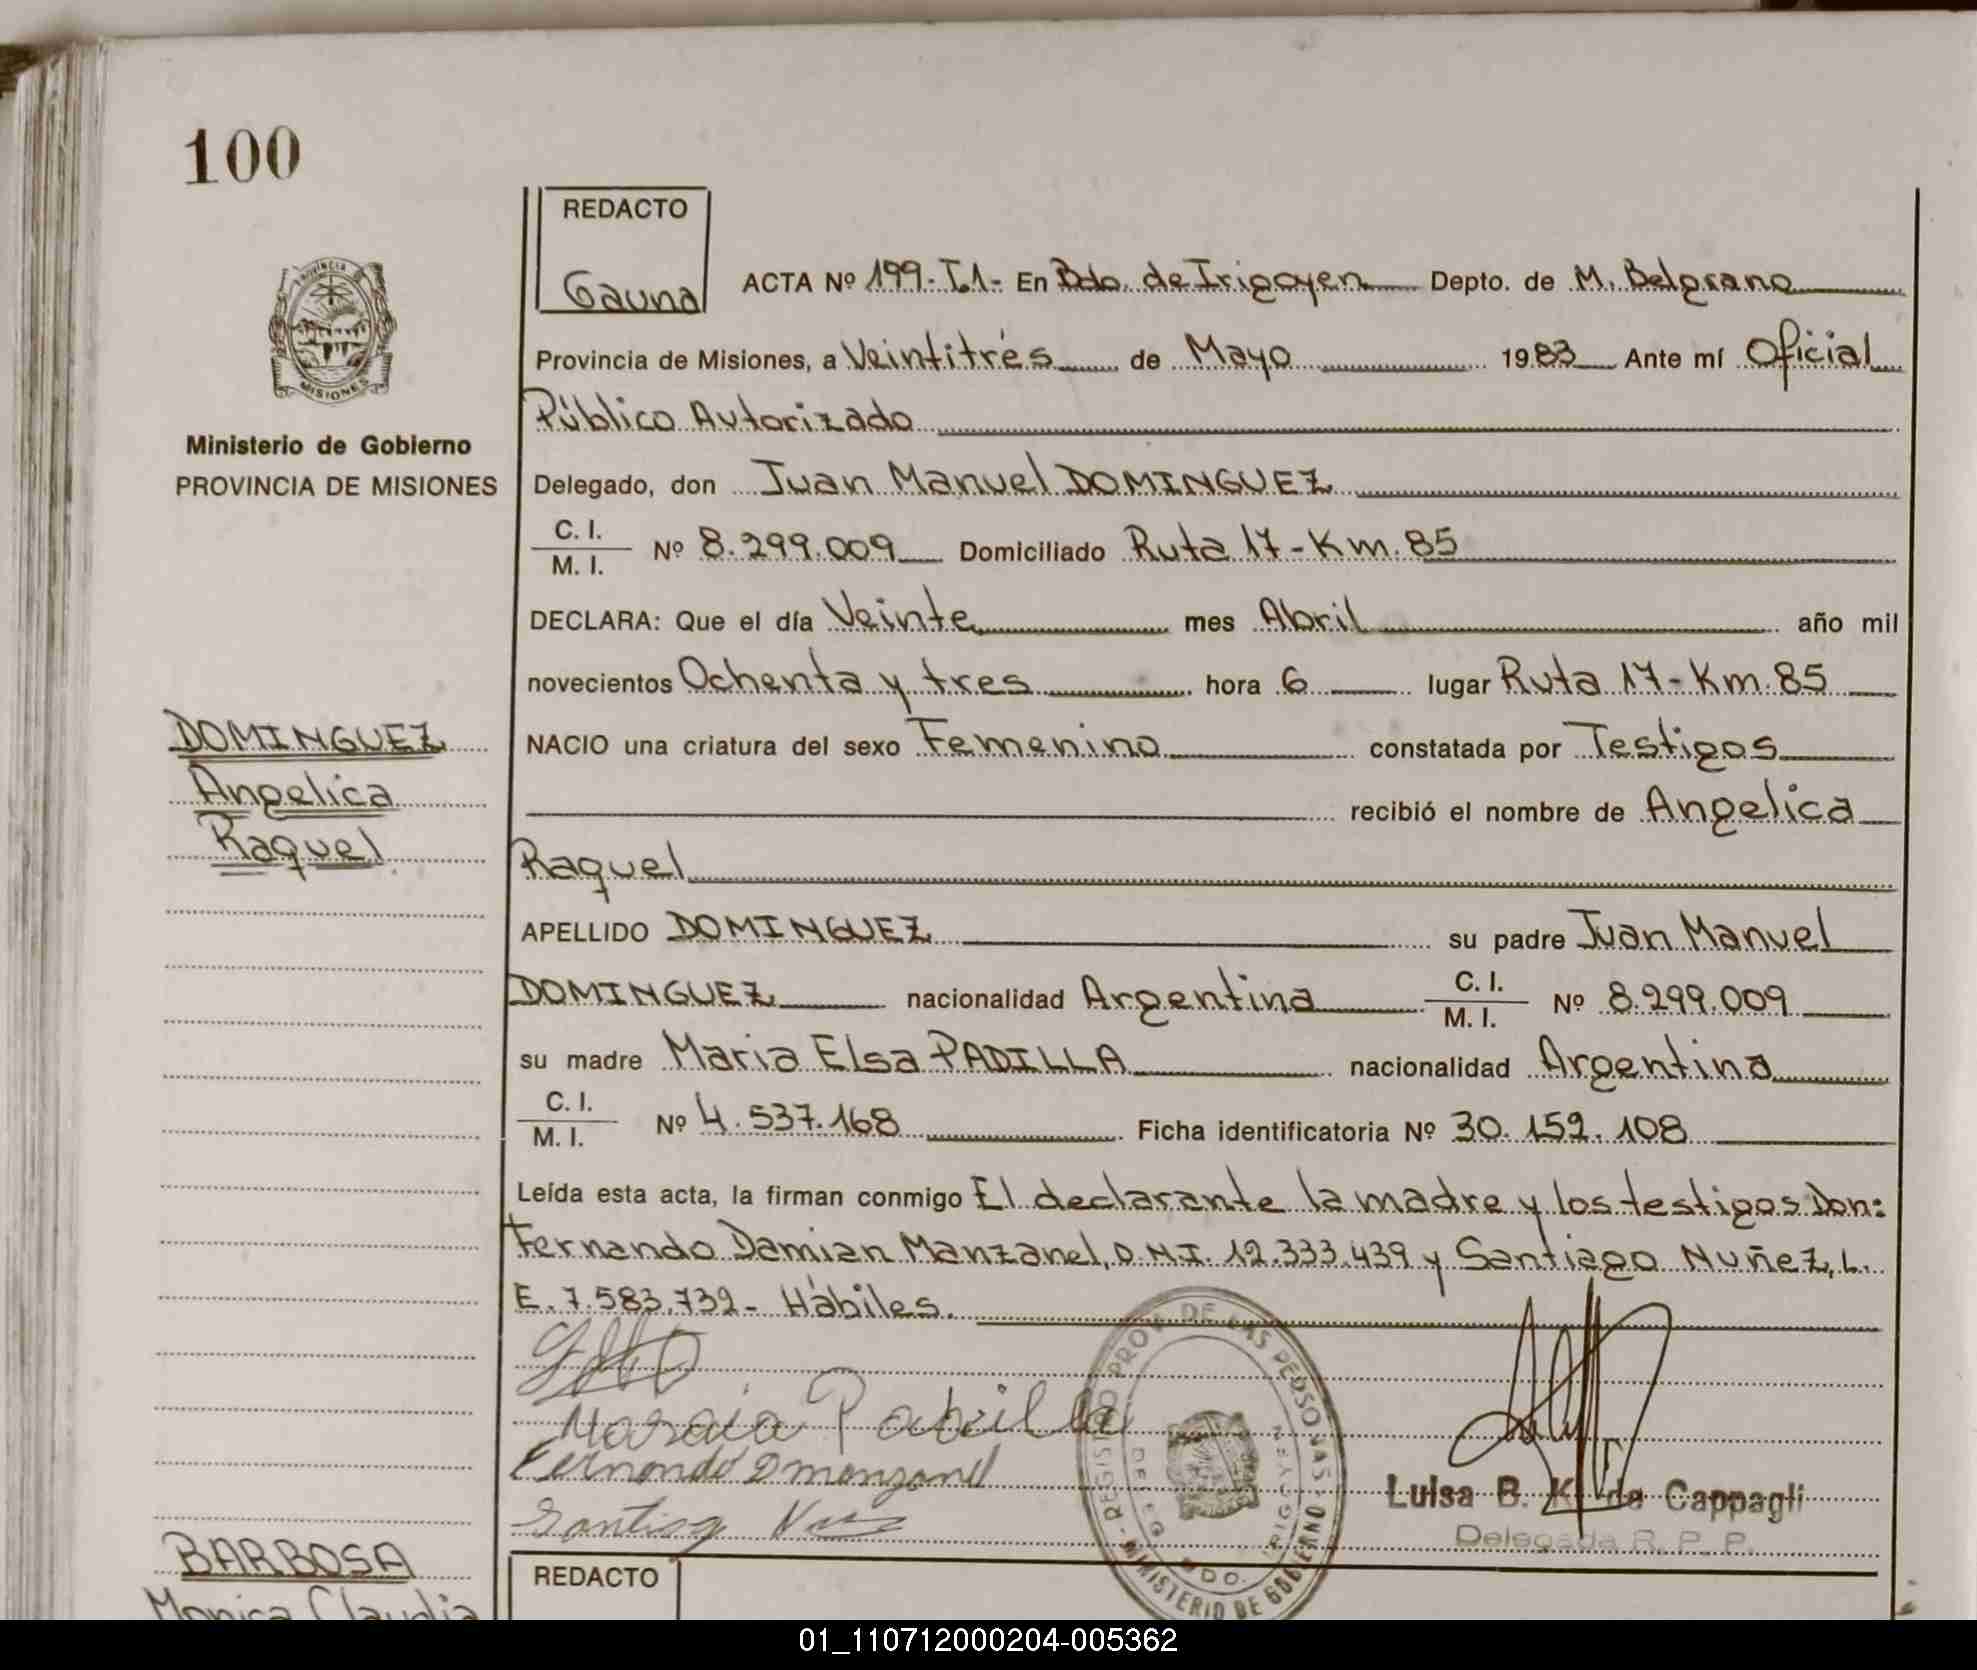 100
PROVINCIA DE
MISIONES
Ministerio de Gobierno
PROVINCIA DE MISIONES
REDACTO
Gauna
ACTA Nº 199-T.1- En Bdo. de Irigoyen Depto. de M. Belgrano
Provincia de Misiones, a Veintitrés de Mayo 1983 Ante mí Oficial
Público Autorizado
Delegado, don Juan Manuel DOMINGUEZ
C. I.
M. I. Nº 8.299.009 Domiciliado Ruta 17-Km.85
DECLARA: Que el día Veinte mes Abril año mil
novecientos Ochenta y tres hora 6 lugar Ruta 17-Km.85
DOMINGUEZ
Angelica
Raquel
NACIO una criatura del sexo Femenino constatada por Testigos
recibió el nombre de Angelica
Raquel
APELLIDO DOMINGUEZ su padre Juan Manuel
DOMINGUEZ nacionalidad Argentina C. I. M. I. Nº 8.299.009
su madre Maria Elsa PADILLA nacionalidad Argentina
C. I.
M. I. Nº 4.537.168 Ficha identificatoria Nº 30.152.108
Leída esta acta, la firman conmigo El declarante la madre y los testigos Don:
Fernando Damian Manzanel, D.N.I. 12.333.439 y Santiago Nuñez, L.
E. 7.583.732- Hábiles.
Fernando D manzanel
Santiago
REGISTRO PROV. DE LAS PERSONAS - MINISTERIO DE GOBIERNO
DELEG. BDO. IRIGOYEN
Luisa B. K. de Cappagli
Delegada R. P. P.
BARBOSA
Monica Claudia
REDACTO
01_110712000204-005362